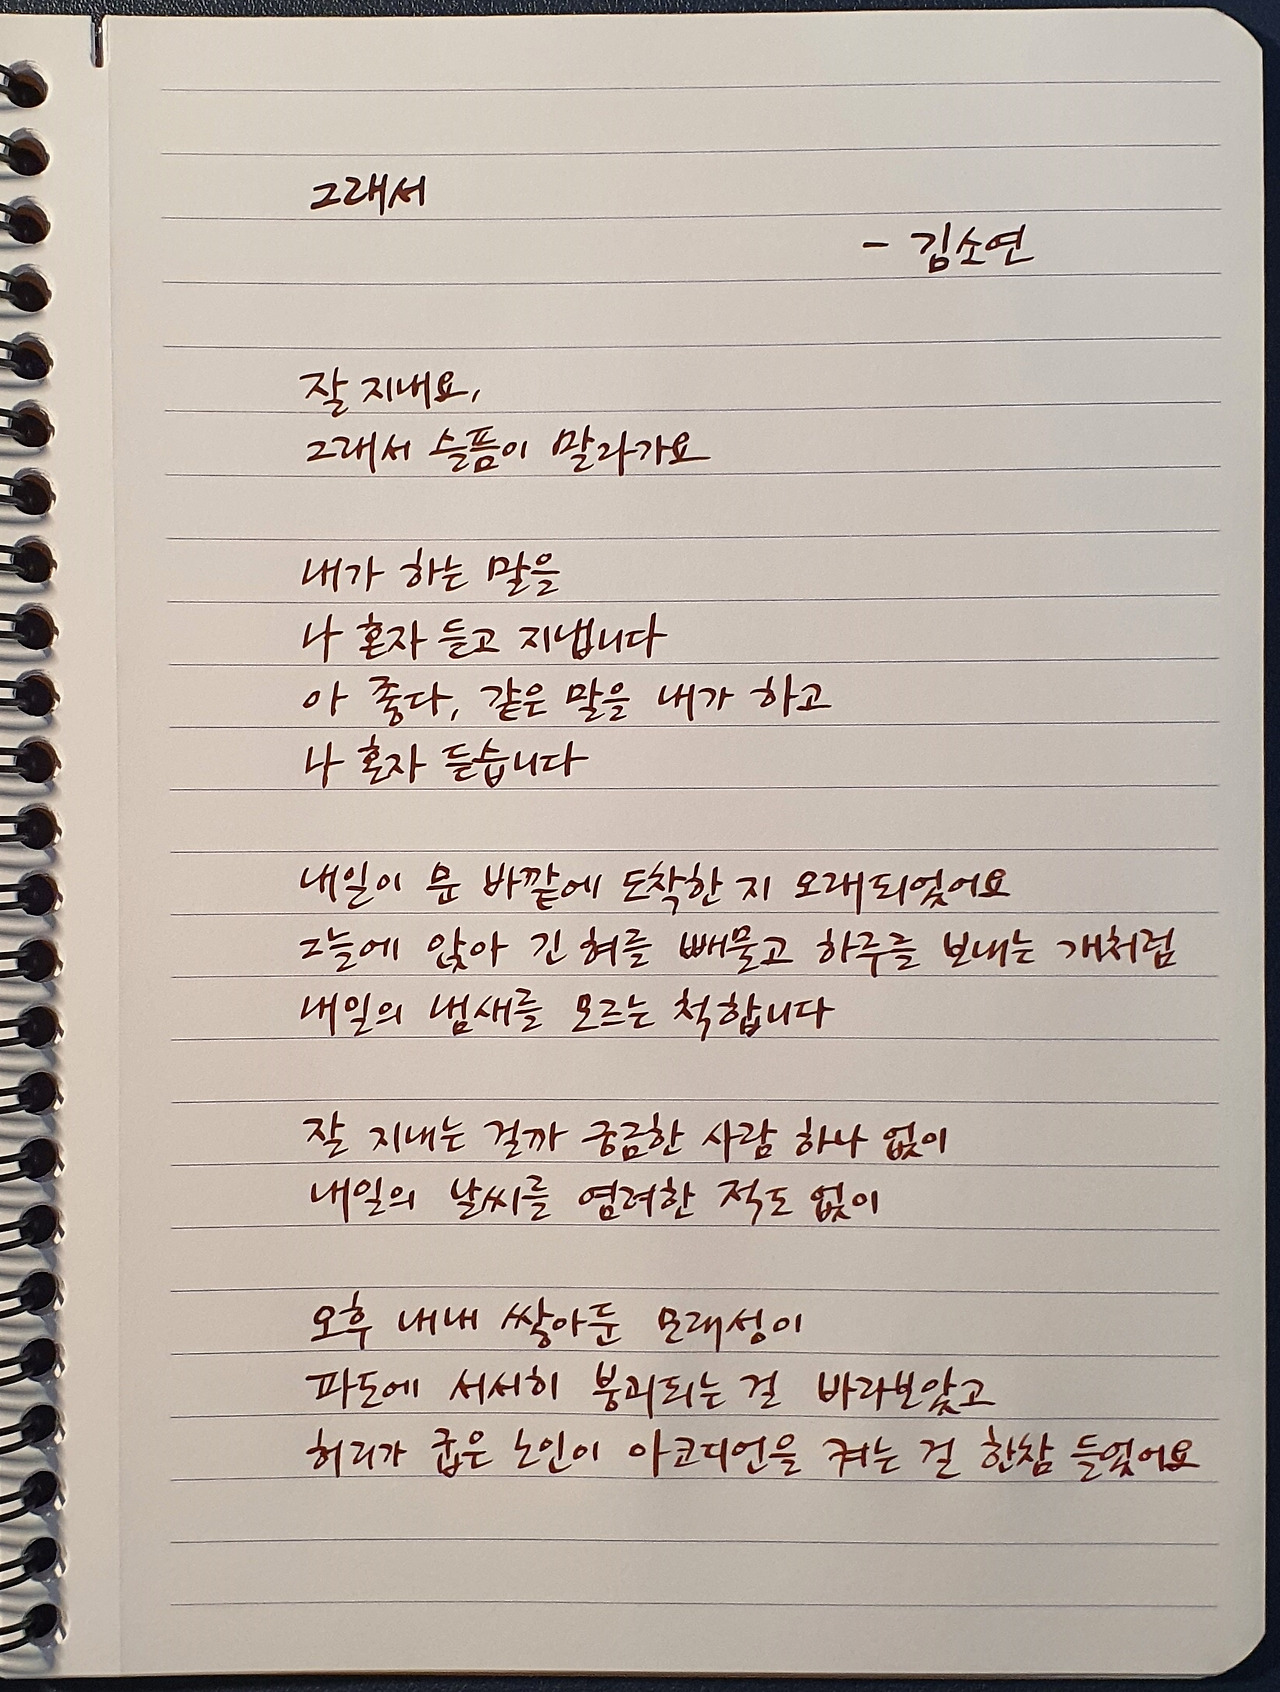 그래서
- 김소연
잘 지내요,
그래서 슬픔이 말라가요
내가 하는 말을
나 혼자 듣고 지냅니다
아 좋다, 같은 말을 내가 하고
나 혼자 듣습니다
내일이 문 바깥에 도착한 지 오래되었어요
그늘에 앉아 긴 혀를 빼물고 하루를 보내는 개처럼
내일의 냄새를 모르는 척합니다
잘 지내는 걸까 궁금한 사람 하나 없이
내일의 날씨를 염려한 적도 없이
오후 내내 쌓아둔 모래성이
파도에 서서히 붕괴되는 걸 바라보았고
허리가 굽은 노인이 아코디언을 켜는 걸 한참 들었어요